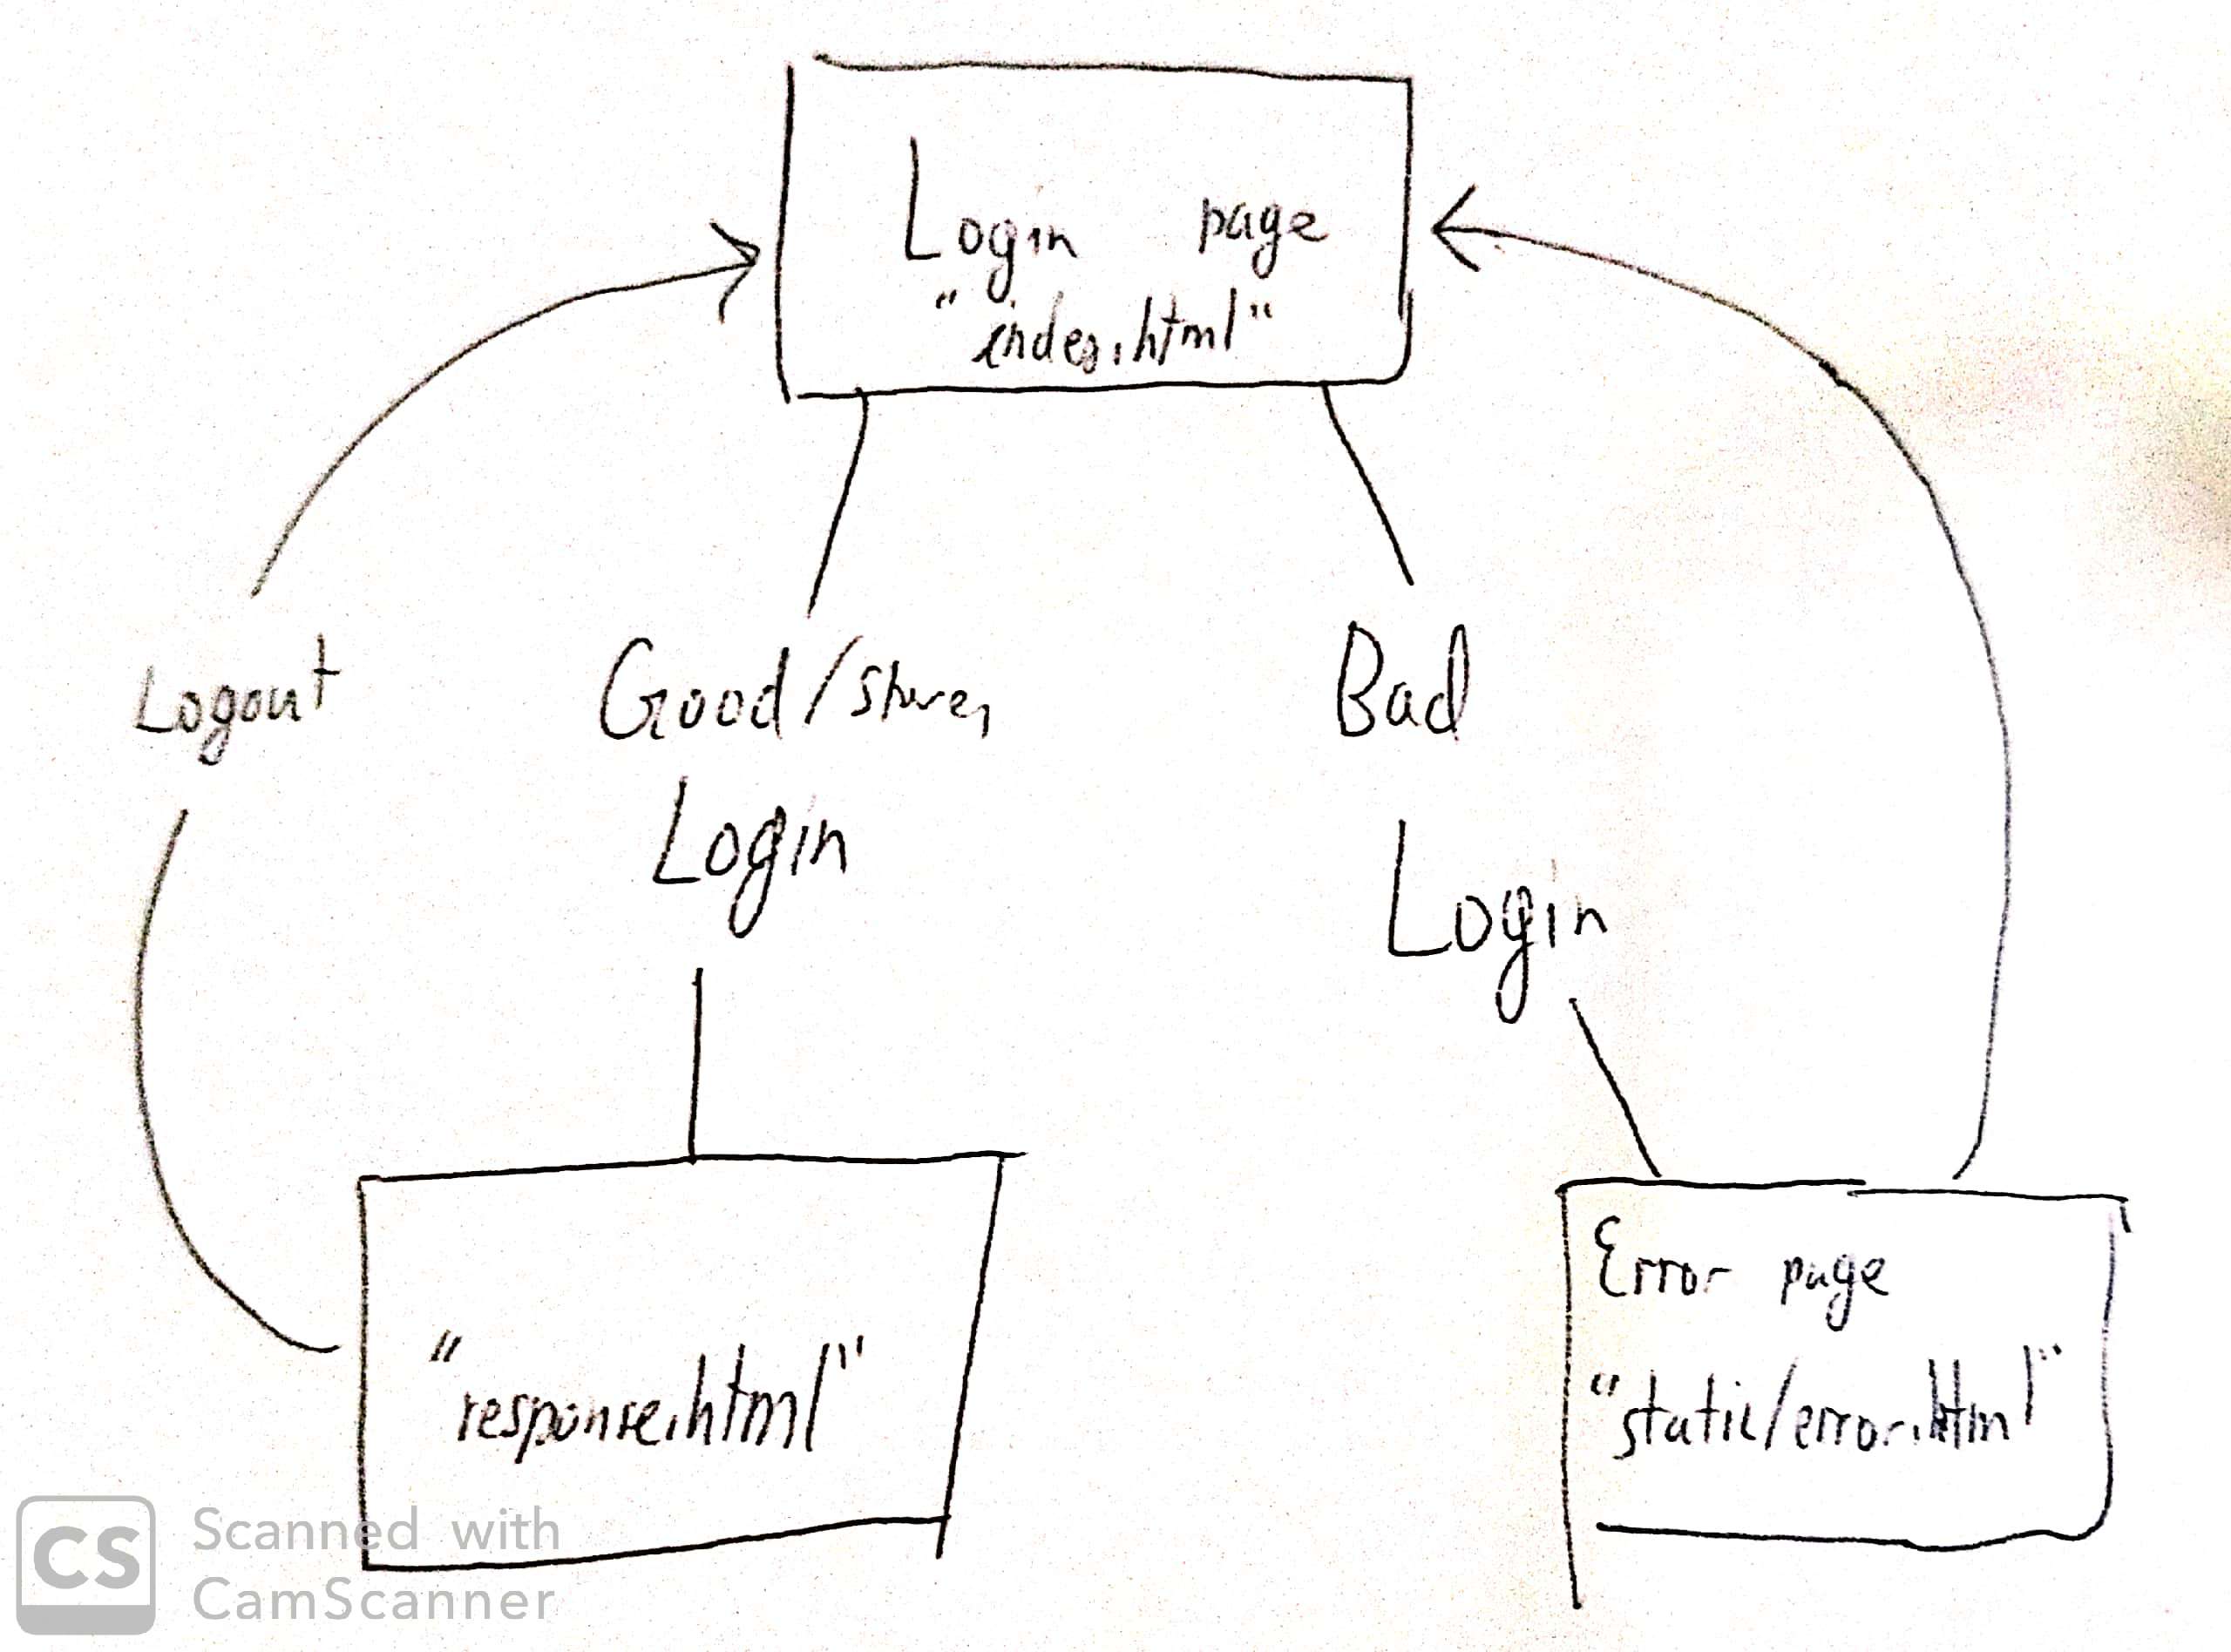 Login page
"index.html"
Logout
Good/
Login
Bad
Login
"response.html"
Error page
"static/error.html"
CS
Scanned with
CamScanner